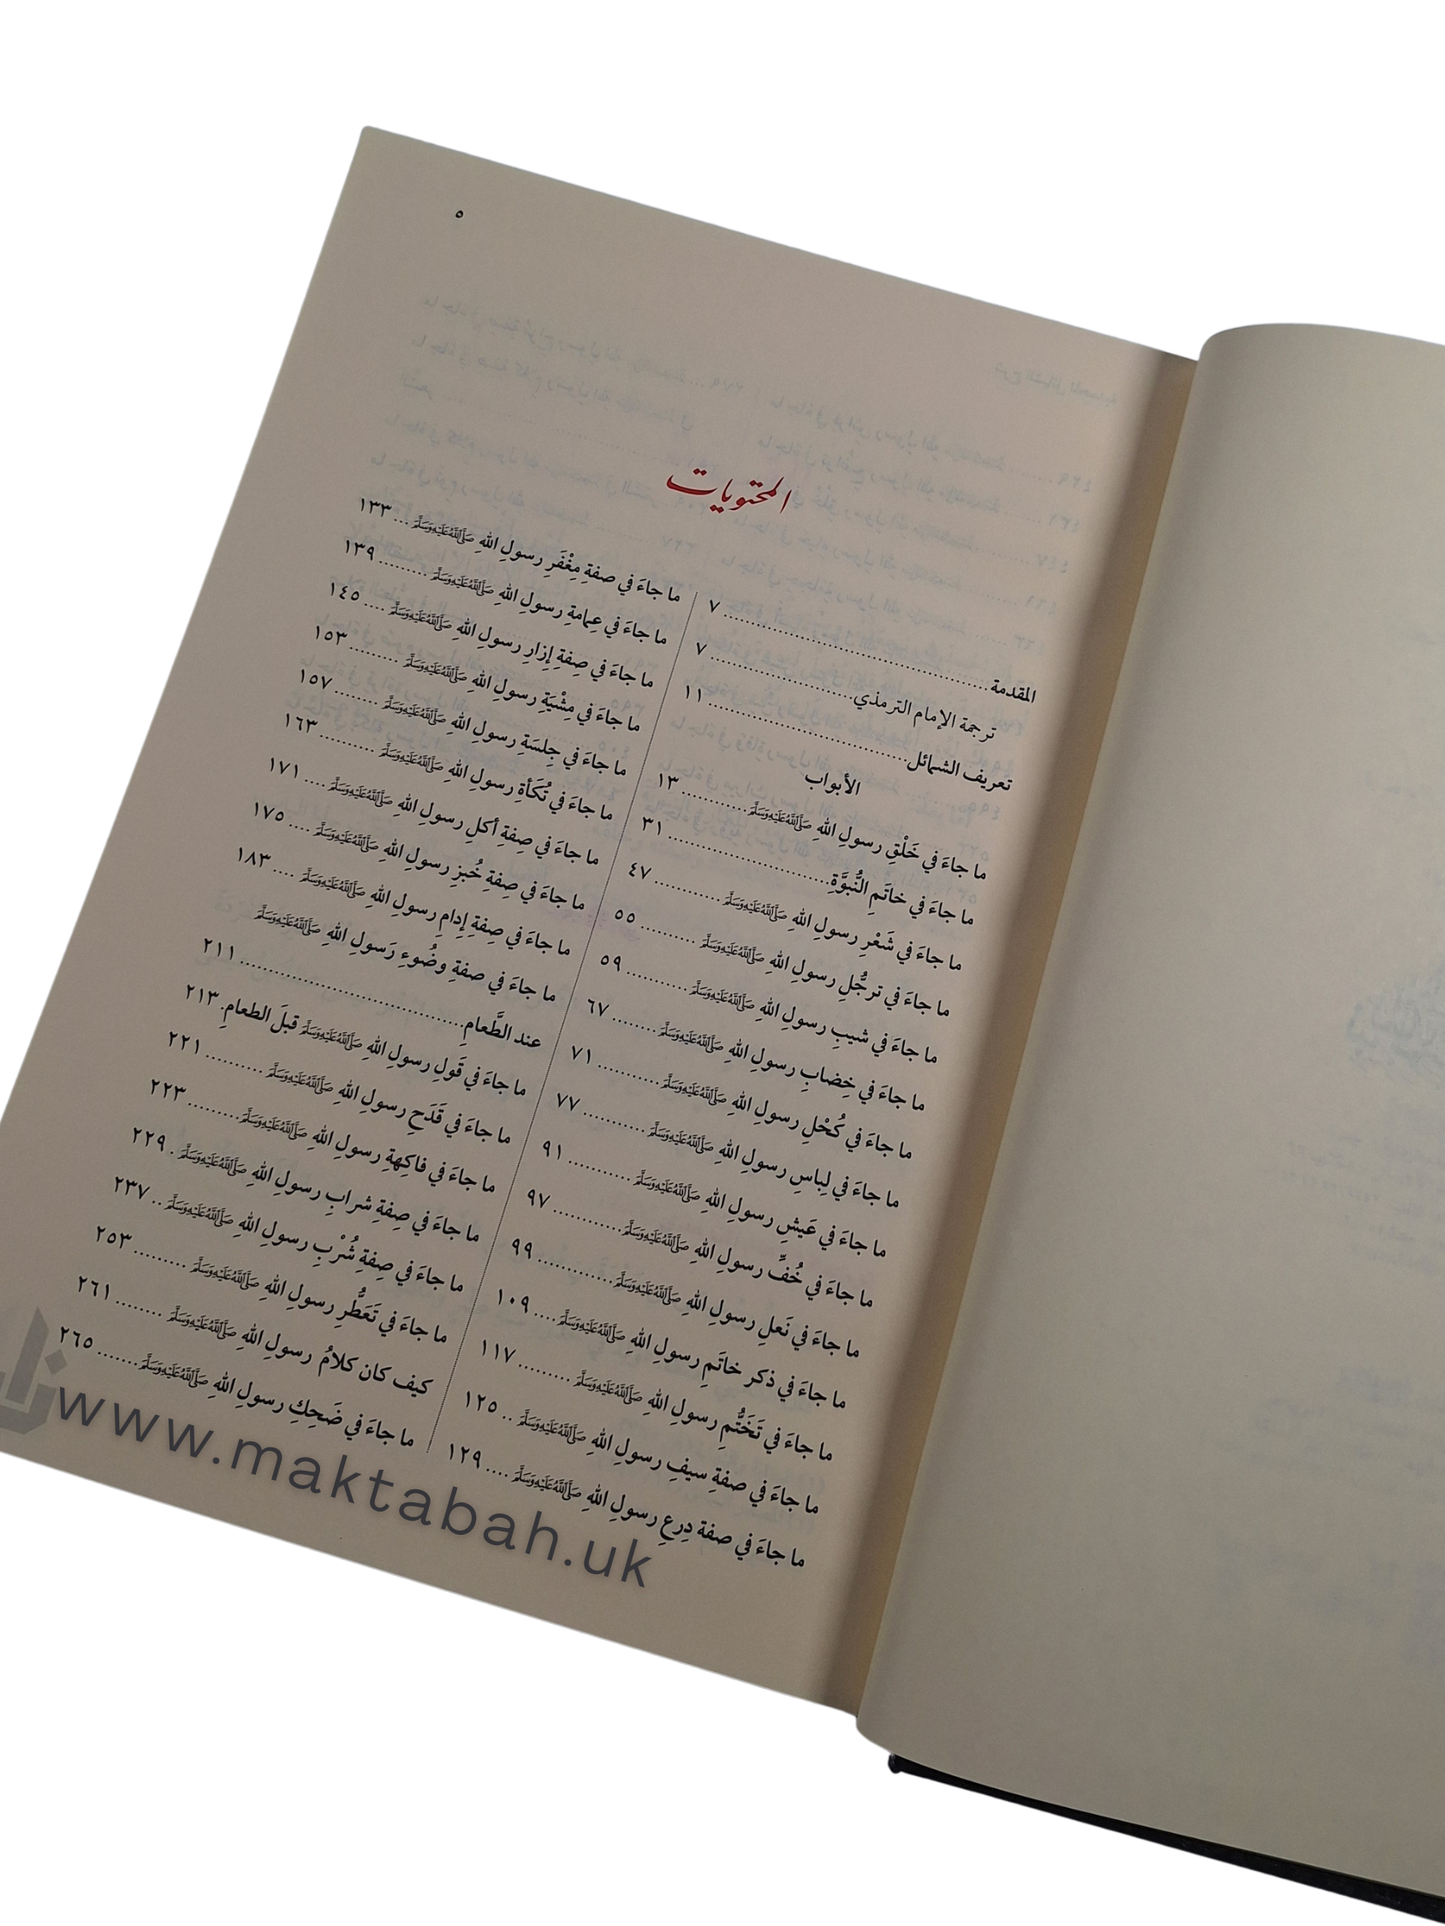 ٥
المحتويات
المقدمة ........ ٧
ترجمة الإمام الترمذي ........ ٧
تعريف الشمائل ........ ١١
الأبواب
ما جاءَ في خَلْقِ رسولِ اللهِ ﷺ ........ ١٣
ما جاءَ في خاتَمِ النُّبوَّةِ ........ ٣١
ما جاءَ في شَعْرِ رسولِ اللهِ ﷺ ........ ٤٧
ما جاءَ في ترجُّلِ رسولِ اللهِ ﷺ ........ ٥٥
ما جاءَ في شيبِ رسولِ اللهِ ﷺ ........ ٥٩
ما جاءَ في خِضابِ رسولِ اللهِ ﷺ ........ ٦٧
ما جاءَ في كُحْلِ رسولِ اللهِ ﷺ ........ ٧١
ما جاءَ في لِباسِ رسولِ اللهِ ﷺ ........ ٧٧
ما جاءَ في عَيشِ رسولِ اللهِ ﷺ ........ ٩١
ما جاءَ في خُفِّ رسولِ اللهِ ﷺ ........ ٩٧
ما جاءَ في نَعلِ رسولِ اللهِ ﷺ ........ ٩٩
ما جاءَ في ذكر خاتَمِ رسولِ اللهِ ﷺ .... ١٠٩
ما جاءَ في تَخَتُّمِ رسولِ اللهِ ﷺ ........ ١١٧
ما جاءَ في صفةِ سيفِ رسولِ اللهِ ﷺ .. ١٢٥
ما جاءَ في صفة دِرعِ رسولِ اللهِ ﷺ .... ١٢٩
ما جاءَ في صفةِ مِغْفَرِ رسولِ اللهِ ﷺ ... ١٣٣
ما جاءَ في عِمامةِ رسولِ اللهِ ﷺ ........ ١٣٩
ما جاءَ في صِفةِ إزارِ رسولِ اللهِ ﷺ .... ١٤٥
ما جاءَ في مِشْيَةِ رسولِ اللهِ ﷺ ........ ١٥٣
ما جاءَ في جِلسَةِ رسولِ اللهِ ﷺ ........ ١٥٧
ما جاءَ في تُكَأةِ رسولِ اللهِ ﷺ ........ ١٦٣
ما جاءَ في صِفةِ أكلِ رسولِ اللهِ ﷺ .... ١٧١
ما جاءَ في صِفةِ خُبزِ رسولِ اللهِ ﷺ .... ١٧٥
ما جاءَ في صِفةِ إدامِ رسولِ اللهِ ﷺ .... ١٨٣
ما جاءَ في صفةِ وضُوءِ رَسولِ اللهِ ﷺ
عند الطَّعامِ ........ ٢١١
ما جاءَ في قَولِ رسولِ اللهِ ﷺ قبلَ الطعامِ. ٢١٣
ما جاءَ في قَدَحِ رسولِ اللهِ ﷺ ........ ٢٢١
ما جاءَ في فاكِهةِ رسولِ اللهِ ﷺ ........ ٢٢٣
ما جاءَ في صِفةِ شرابِ رسولِ اللهِ ﷺ . ٢٢٩
ما جاءَ في صِفةِ شُرْبِ رسولِ اللهِ ﷺ .. ٢٣٧
ما جاءَ في تَعَطُّرِ رسولِ اللهِ ﷺ ........ ٢٥٣
كيف كان كلامُ رسولِ اللهِ ﷺ ........ ٢٦١
ما جاءَ في ضَحِكِ رسولِ اللهِ ﷺ ........ ٢٦٥
www.maktabah.uk